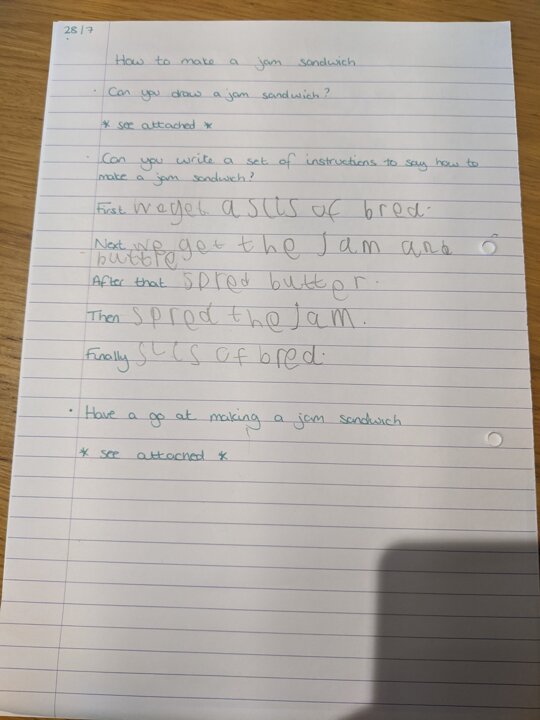 28/7
How to make a jam sandwich
· Can you draw a jam sandwich?
* see attached *
· Can you write a set of instructions to say how to
make a jam sandwich?
First we get a slis of bred.
Next we get the Jam and
buttre
After that spred butter.
Then spred the Jam.
Finally slis of bred.
· Have a go at making a jam sandwich
* see attached *